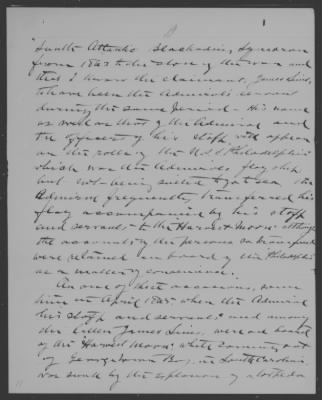 South Atlantic Blockading Squadron
from 1863 to the close of the war and
that I knew the claimant, James Sims,
to have been the Admiral's servant
during the same period. His name
as well as that of the Admiral and
the officers of his staff will appear
on the rolls of the U.S.S. Philadelphia
which was the Admiral's flag ship
but not being suited to go to sea, the
Admiral frequently transferred his
flag accompanied by his staff
and servants to the Harvest Moon although
the accounts of the persons so transferred
were retained on board of the Philadelphia
as a matter of convenience.
On one of these occasions, some
time in April 1865 when the Admiral
his staff and servants and among
the latter James Sims, were on board
of the "Harvest Moon" while coming out
of Georgetown Bay, in South Carolina
was sunk by the explosion of a torpedo